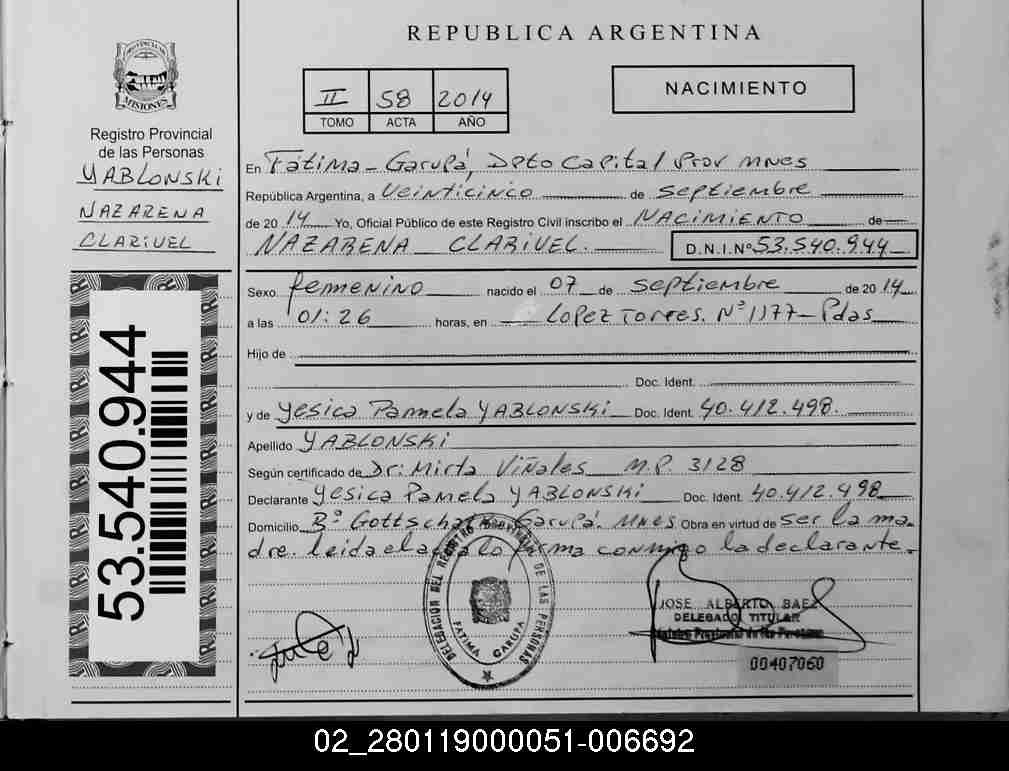 REPUBLICA ARGENTINA
PROVINCIA DE
MISIONES
Registro Provincial
de las Personas
YABLONSKI
NAZARENA
CLARIVEL
53.540.944
II 58 2014
TOMO ACTA AÑO
NACIMIENTO
En Fátima - Garupá, Dpto Capital Prov MNES
República Argentina, a Veinticinco de septiembre
de 2014 Yo, Oficial Público de este Registro Civil inscribo el NACIMIENTO de
NAZARENA CLARIVEL. D.N.I.Nº 53.540.944
Sexo femenino nacido el 07 de septiembre de 2014
a las 01:26 horas, en Lopez Torres. Nº 1177 - Pdas
Hijo de
Doc. Ident.
y de Yesica Pamela YABLONSKI Doc. Ident. 40.412.498.
Apellido YABLONSKI
Según certificado de Dr: Mirta Viñales M.P. 3128
Declarante Yesica Pamela YABLONSKI Doc. Ident. 40.412.498
Domicilio Bº Gottschalk Garupá. MNES Obra en virtud de ser la ma
dre. Leida el acta la firma conmigo la declarante.
DELEGACION DEL REGISTRO PROVINCIAL DE LAS PERSONAS
FATIMA GARUPA
JOSE ALBERTO BAEZ
DELEGADO TITULAR
Registro Provincial de las Personas
00407060
02_280119000051-006692